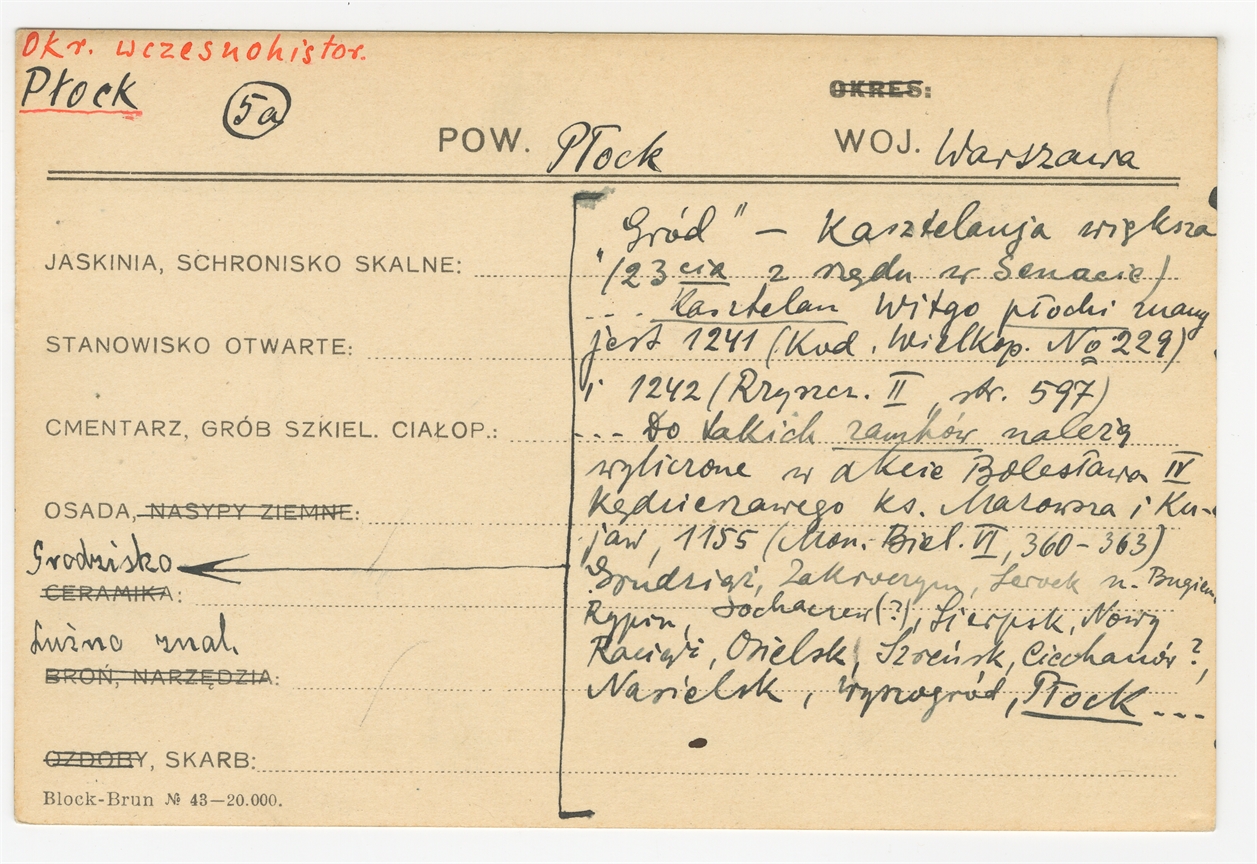 Okr. wczesnohistor.
Płock
5a
OKRES:
POW. Płock
WOJ. Warszawa
JASKINIA, SCHRONISKO SKALNE:
STANOWISKO OTWARTE:
CMENTARZ, GRÓB SZKIEL. CIAŁOP.:
OSADA, NASYPY ZIEMNE:
Grodzisko
CERAMIKA:
Luźno znal.
BROŃ, NARZĘDZIA:
OZDOBY, SKARB:
Block-Brun № 43—20.000.
„Gród" — Kasztelanja większa
(23cia z rzędu w Senacie)
.... Kasztelan Witgo płocki znany
jest 1241 (Kod. Wielkop. No 229)
i 1242 (Rzyszcz. II, str. 597)
... Do takich zamków należą
wyliczone w akcie Bolesława IV
Kędzierzawego ks. Mazowsza i Ku-
jaw, 1155 (Mon. Biel. VI, 360–363)
Grudziąż, Zakroczym, Serock n. Bugiem,
Rypin, Sochaczew (?), Sierpsk, Nowy
Raciąż, Osielsk, Szreńsk, Ciechanów?,
Nasielsk, Wyszogród, Płock ...